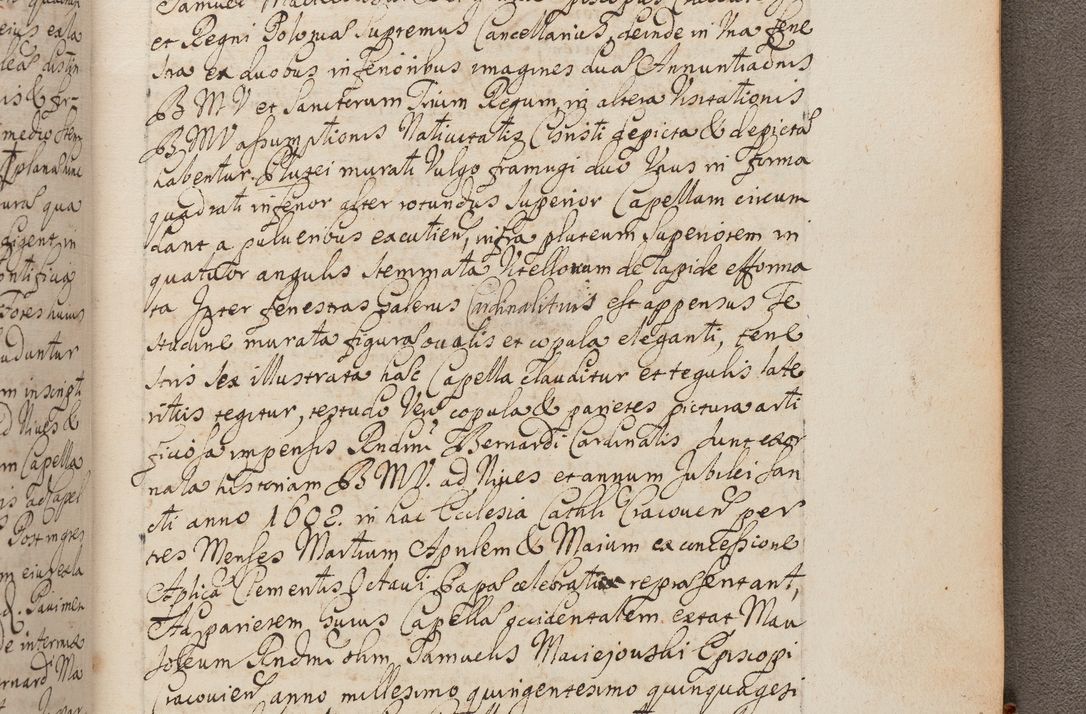 et Regni Poloniæ Supremus Cancellarius, deinde in Una fene
stra ex duobus inferioribus imagines duæ Annuntiaonis
B M V et Sanctorum Trium Regum, in altera Visitationis
BMV assumptionis Nativitatis Christi depicta & depictæ
habentur. Plutei murati Vulgo framugi duo Unus in forma
quadrati inferior alter rotundus Superior Capellam circum
dant a pulveribus excutien, infra pluteum Superiorem in
quatuor angulis stemmata Vitellonum de lapide efforma
ta Inter fenestras Galerus Cardinalitius est appensus Te
studine murata figuræ ovalis et copula eleganti, fene
stris sex illustrata hæc Capella clauditur et tegulis late
ritiis tegitur, testudo Vero copula & parietes pictura arti
ficiosa impensis Rndmi Bernardi Cardinalis sunt exor
nata historiam B MV. ad Nives et annum Jubilei San
cti anno 1602. in hac Ecclesia Cathli Cracovien per
tres Menses Martium Aprilem & Maium ex concessione
Aplica Clementis Octavi Papæ celebrati repræsentant,
Ad parietem huius Capellæ occidentalem extat Mau
soleum Rndmi olim Samuelis Maciejouski Episcopi
Cracovien anno millesimo quingentesimo quinquagesi
eius exla
distin
medio
plana
qua
in
Fores huius
uduntur
m inscript
d Nives &
m Capella
Post ingres
Pavimen
de intermix
ernardi Ma